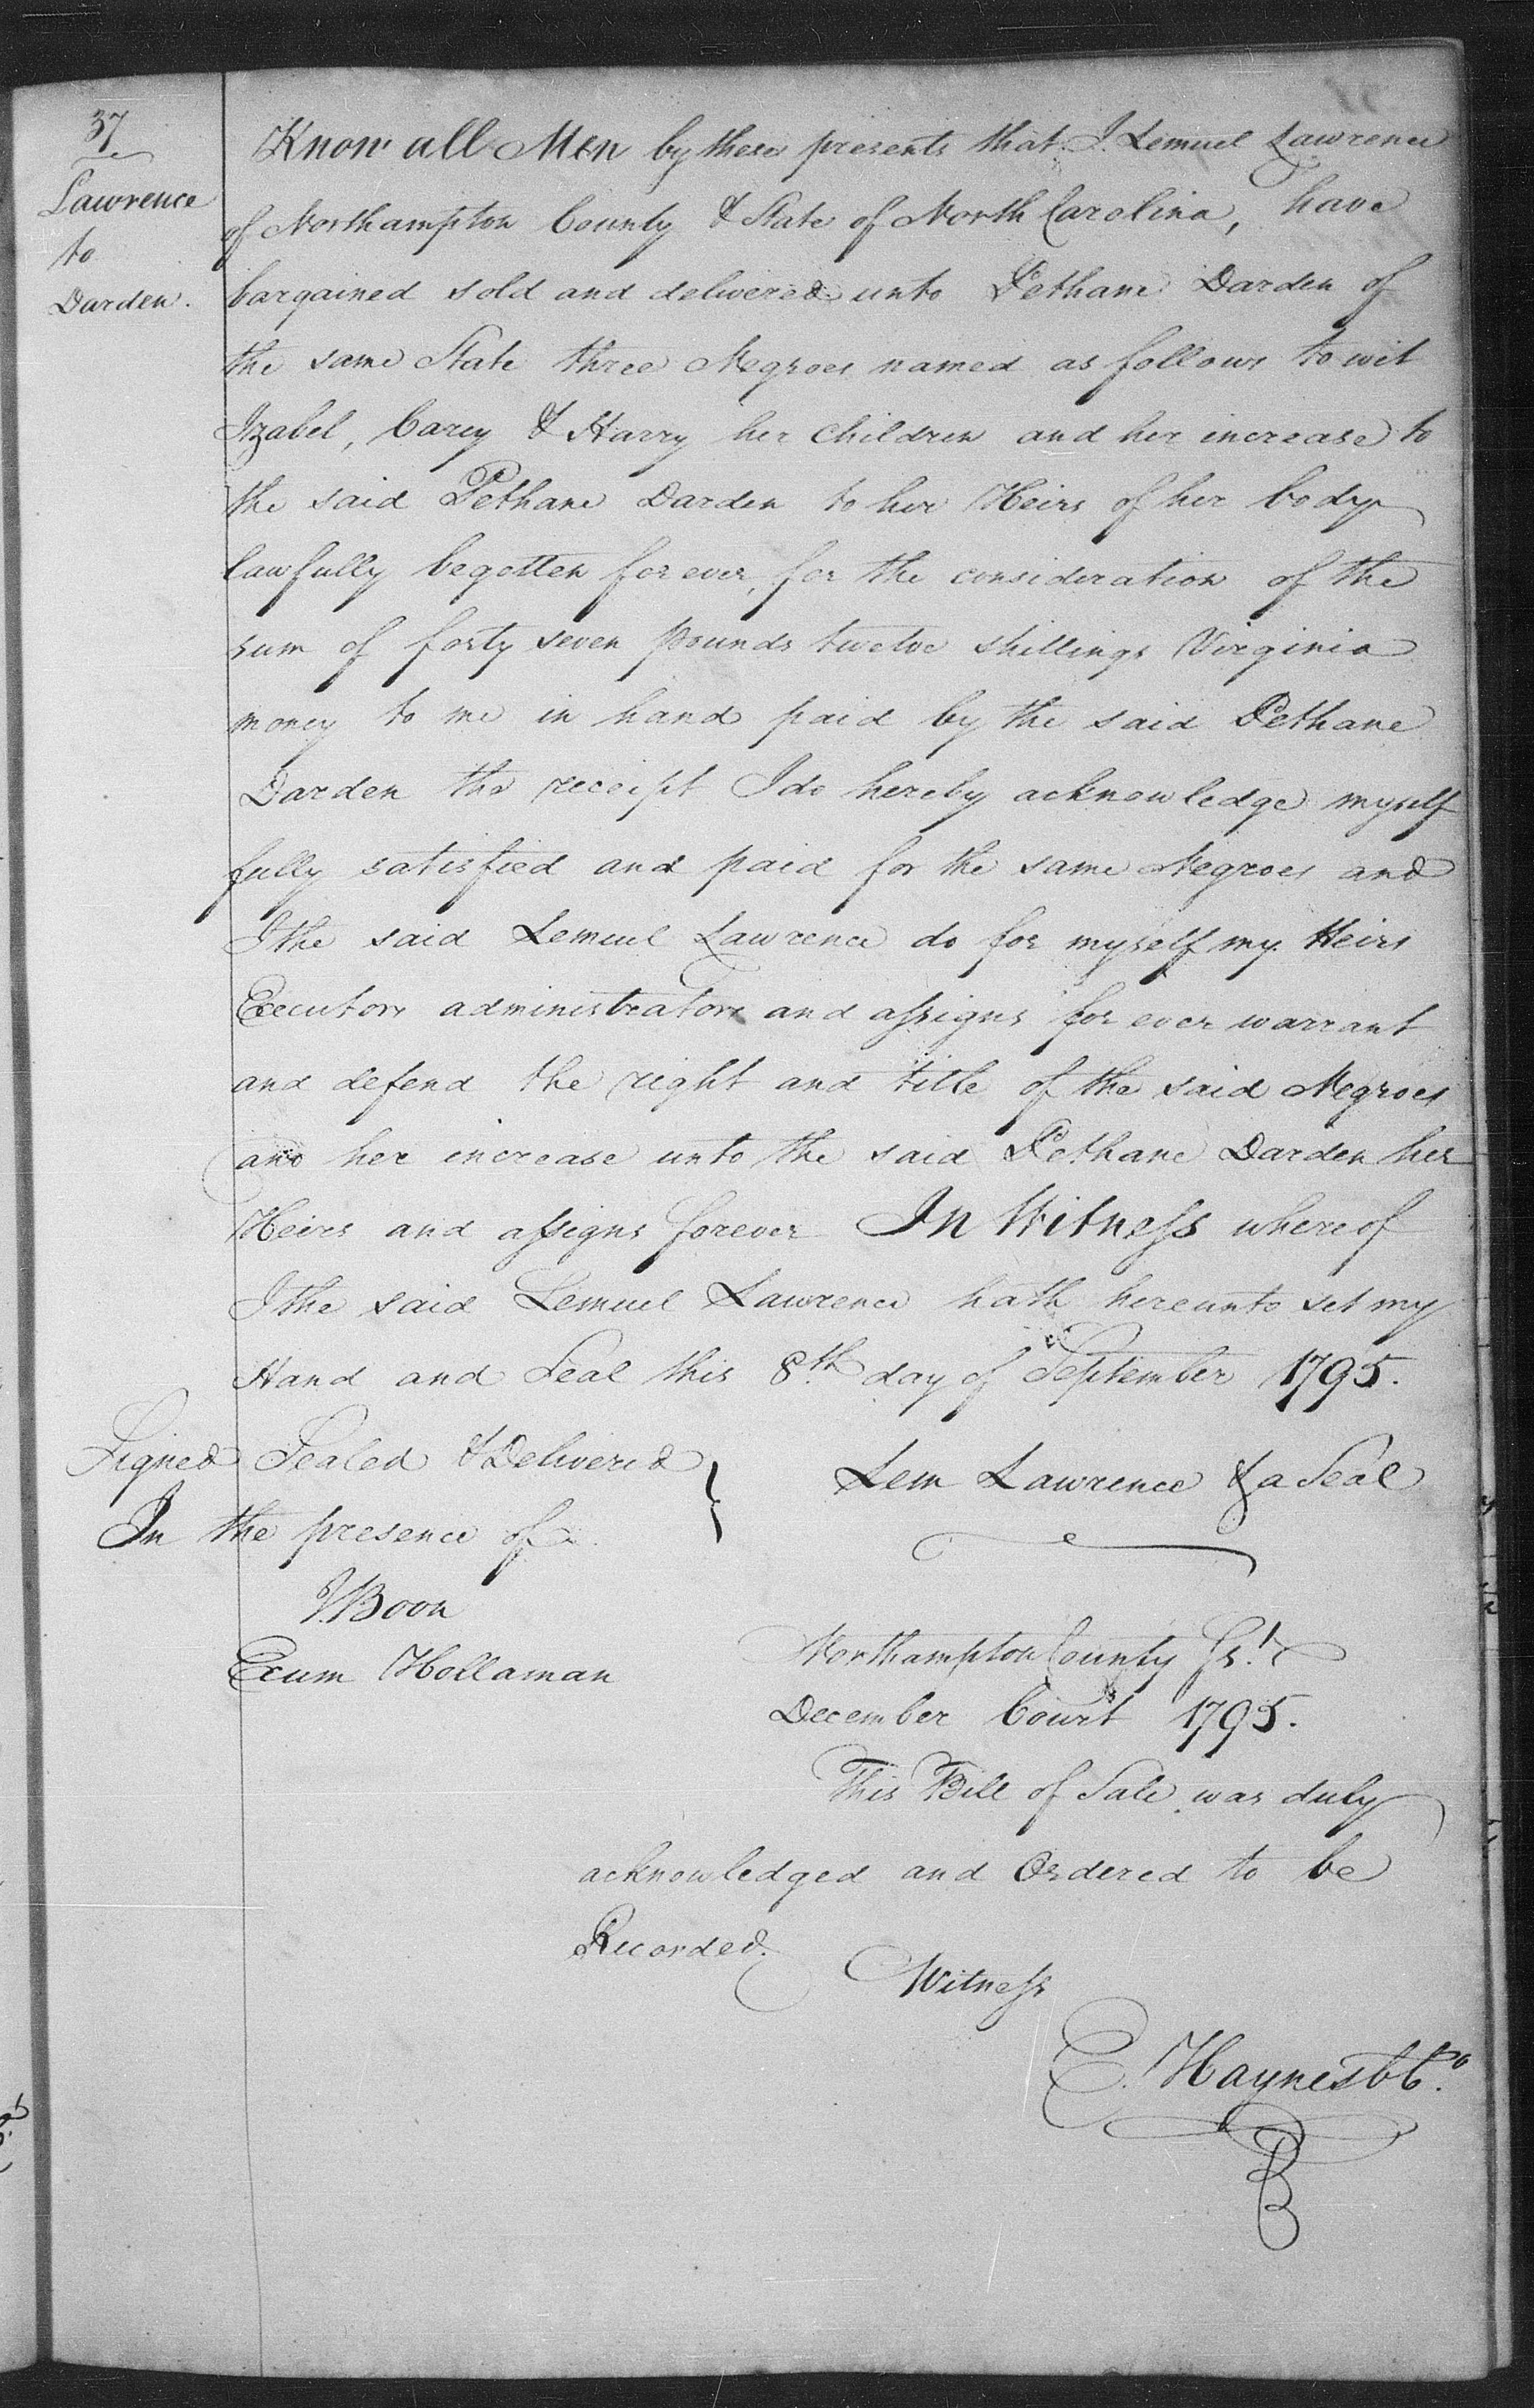 37
Lawrence
to
Darden.
Know all Men by these presents that I. Lemuel Lawrence
of Northampton County & State of North Carolina, have
bargained sold and delivered unto Pethane Darden of
the same State three Negroes named as follows to wit
Izabel, Carey & Harry her Children and her increase to
the said Pethane Darden to her Heirs of her body
lawfully begotten for ever, for the consideration of the
sum of forty seven pounds twelve shillings Virginia
money to me in hand paid by the said Pethane
Darden the receipt I do hereby acknowledge myself
fully satisfied and paid for the same Negroes and
I the said Lemuel Lawrence do for myself my Heirs
Executors administrators and assigns for ever warrant
and defend the right and title of the said Negroes
and her increase unto the said Pethane Darden her
Heirs and assigns forever In Witness whereof
I the said Lemuel Lawrence hath hereunto set my
Hand and Seal this 8th day of September 1795.
Signed Sealed & Delivered
In the presence of
Lem Lawrence & a Seal
J. Boon
Exum Hollaman
Northampton County Ss.t
December Court 1795.
This Bill of Sale was duly
acknowledged and Ordered to be
Recorded.
Witness
E. Haynes CC.o